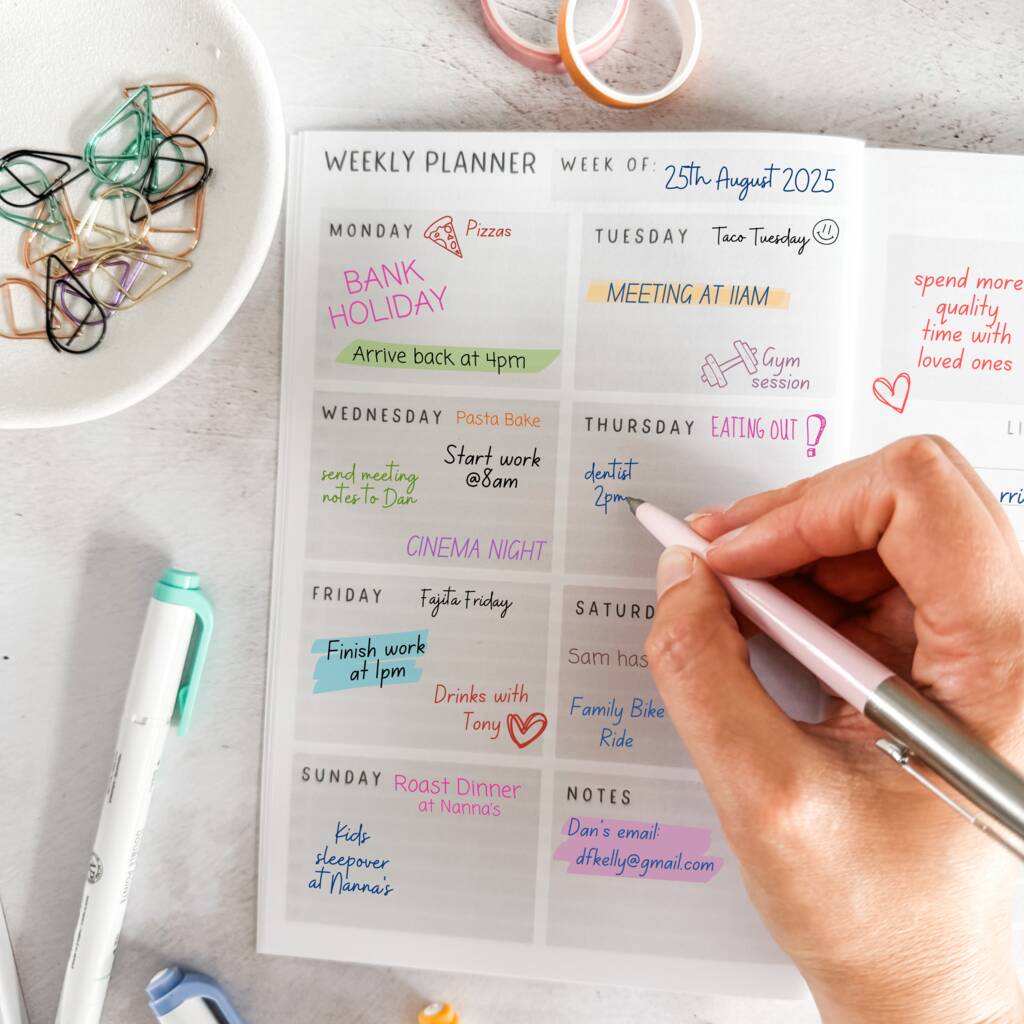 WEEKLY PLANNER
WEEK OF:
25th August 2025
MONDAY
Pizzas
BANK
HOLIDAY
Arrive back at 4pm
TUESDAY
Taco Tuesday
MEETING AT 11AM
Gym
session
WEDNESDAY
Pasta Bake
Start work
@8am
send meeting
notes to Dan
CINEMA NIGHT
THURSDAY
EATING OUT!
dentist
2pm
FRIDAY
Fajita Friday
Finish work
at 1pm
Drinks with
Tony
SATURD
Sam has
Family Bike
Ride
SUNDAY
Roast Dinner
at Nanna's
Kids
sleepover
at Nanna's
NOTES
Dan's email:
dfkelly@gmail.com
spend more
quality
time with
loved ones